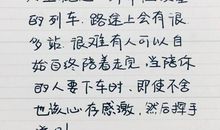 的列车,路途上会有很
多站,很难有人可以自
始自终陪着走完,当陪你
的人要下车时,即使不舍
也该心存感激,然后挥手